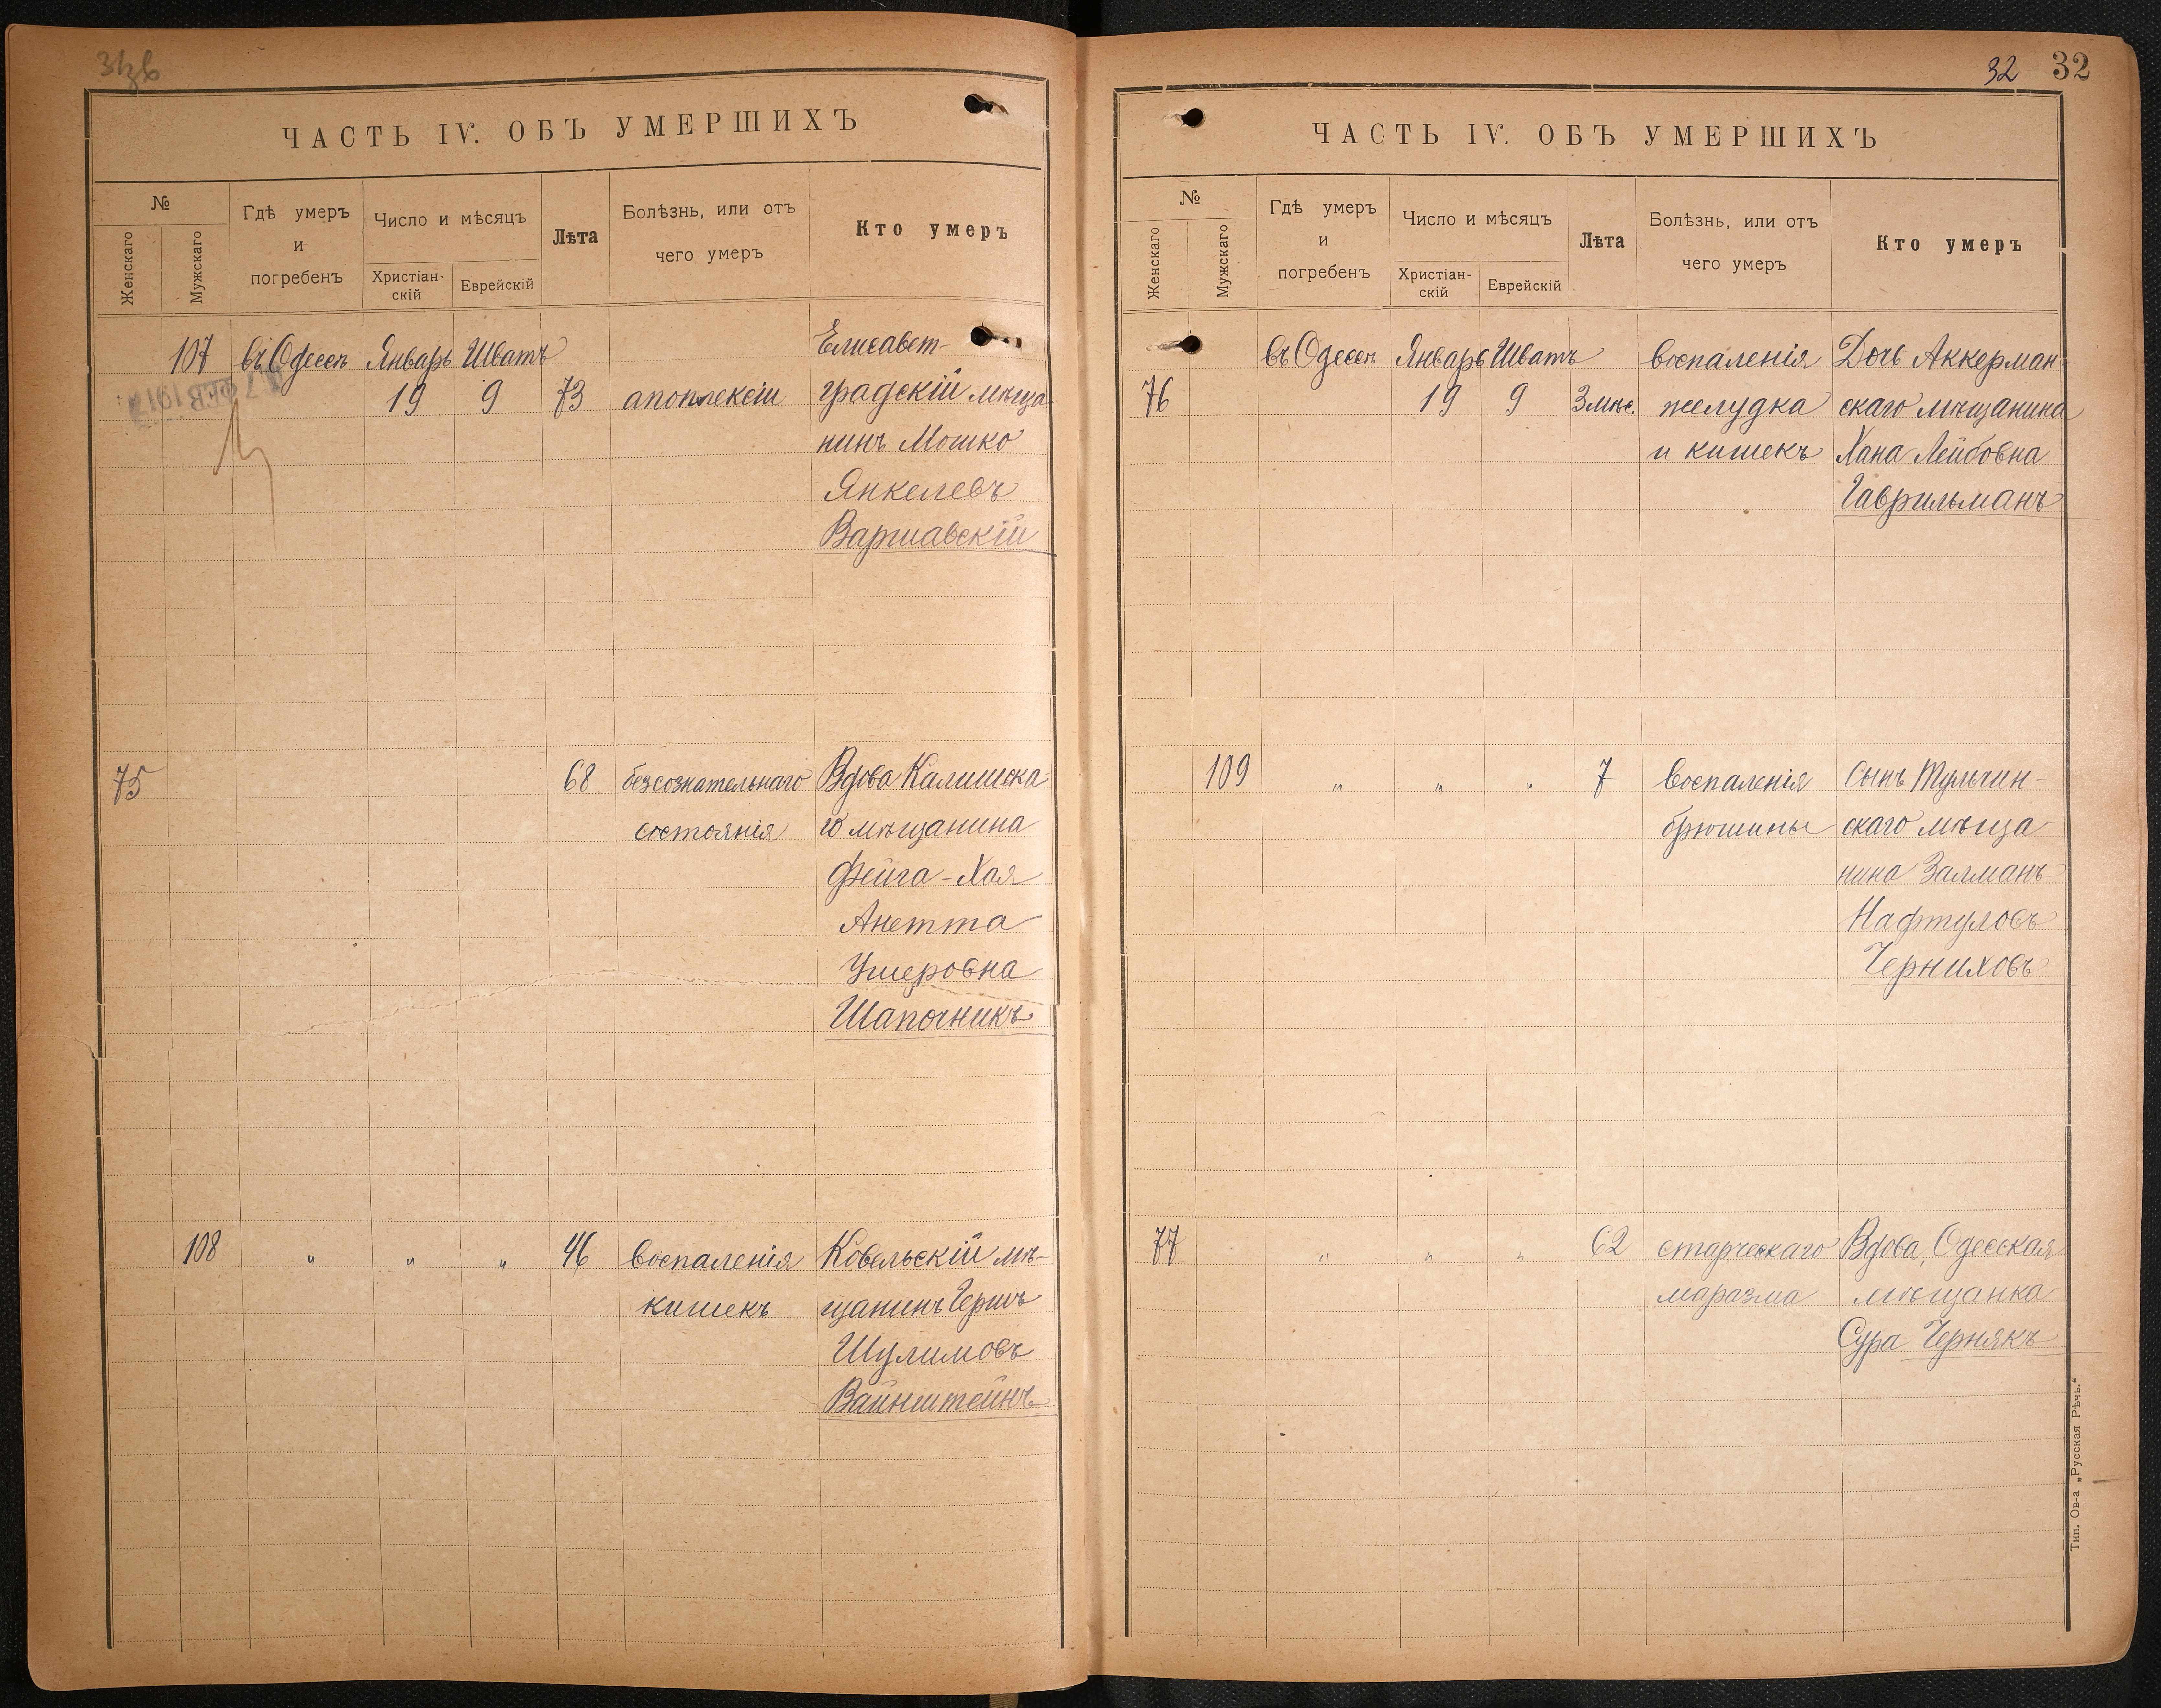 ЧАСТЬ IV. ОБЪ УМЕРШИХЪ
№
Женскаго
Мужскаго
Гдѣ умеръ
и
погребенъ
Число и мѣсяцъ
Христіан-
скій
Еврейскій
Лѣта
Болѣзнь, или отъ
чего умеръ
Кто умеръ
107 въ Одессѣ Январь Шватъ Елисавет-
19 9 73 апоплексіи градскій мѣща
нинъ Мошко
Янкелевъ
Варшавскій
75 68 безсознательнаго Вдова Калишска
состоянія го мѣщанина
Фейга-Хая
Анетта
Ушеровна
Шапочникъ
108 " " " 46 воспаленія Ковельскій мѣ-
кишекъ щанинъ Гершъ
Шулимовъ
Вайнштейнъ
32 32
ЧАСТЬ IV. ОБЪ УМЕРШИХЪ
№
Женскаго
Мужскаго
Гдѣ умеръ
и
погребенъ
Число и мѣсяцъ
Христіан-
скій
Еврейскій
Лѣта
Болѣзнь, или отъ
чего умеръ
Кто умеръ
въ Одессѣ Январь Шватъ воспаленія Дочь Аккерман-
76 19 9 3 мѣс. желудка скаго мѣщанина
и кишекъ Хана Лейбовна
Гаврильманъ
109 " " " 7 воспаленія Сынъ Тульчин-
брюшины скаго мѣща
нина Залманъ
Нафтуловъ
Черниховъ
77 " " " 62 старческаго Вдова, Одесская
маразма мѣщанка
Сура Чернякъ
Тип. Ов-а „Русская Рѣчь."